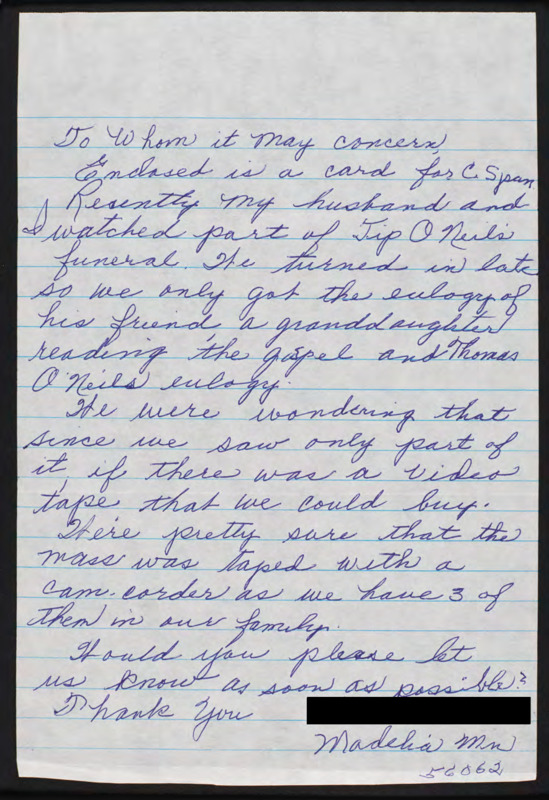 To Whom it May concern,
Enclosed is a card for C Span.
Resently my husband and
I watched part of Tip O Neil's
funeral. We turned in late
so we only got the eulogy of
his friend, a granddaughter
reading the gospel and Thomas
O'Neils eulogy.
We were wondering that
since we saw only part of
it, if there was a video
tape that we could buy.
We're pretty sure that the
mass was taped with a
cam.corder as we have 3 of
them in our family.
Would you please let
us know as soon as possible?
Thank You
Madelia Mn
56062